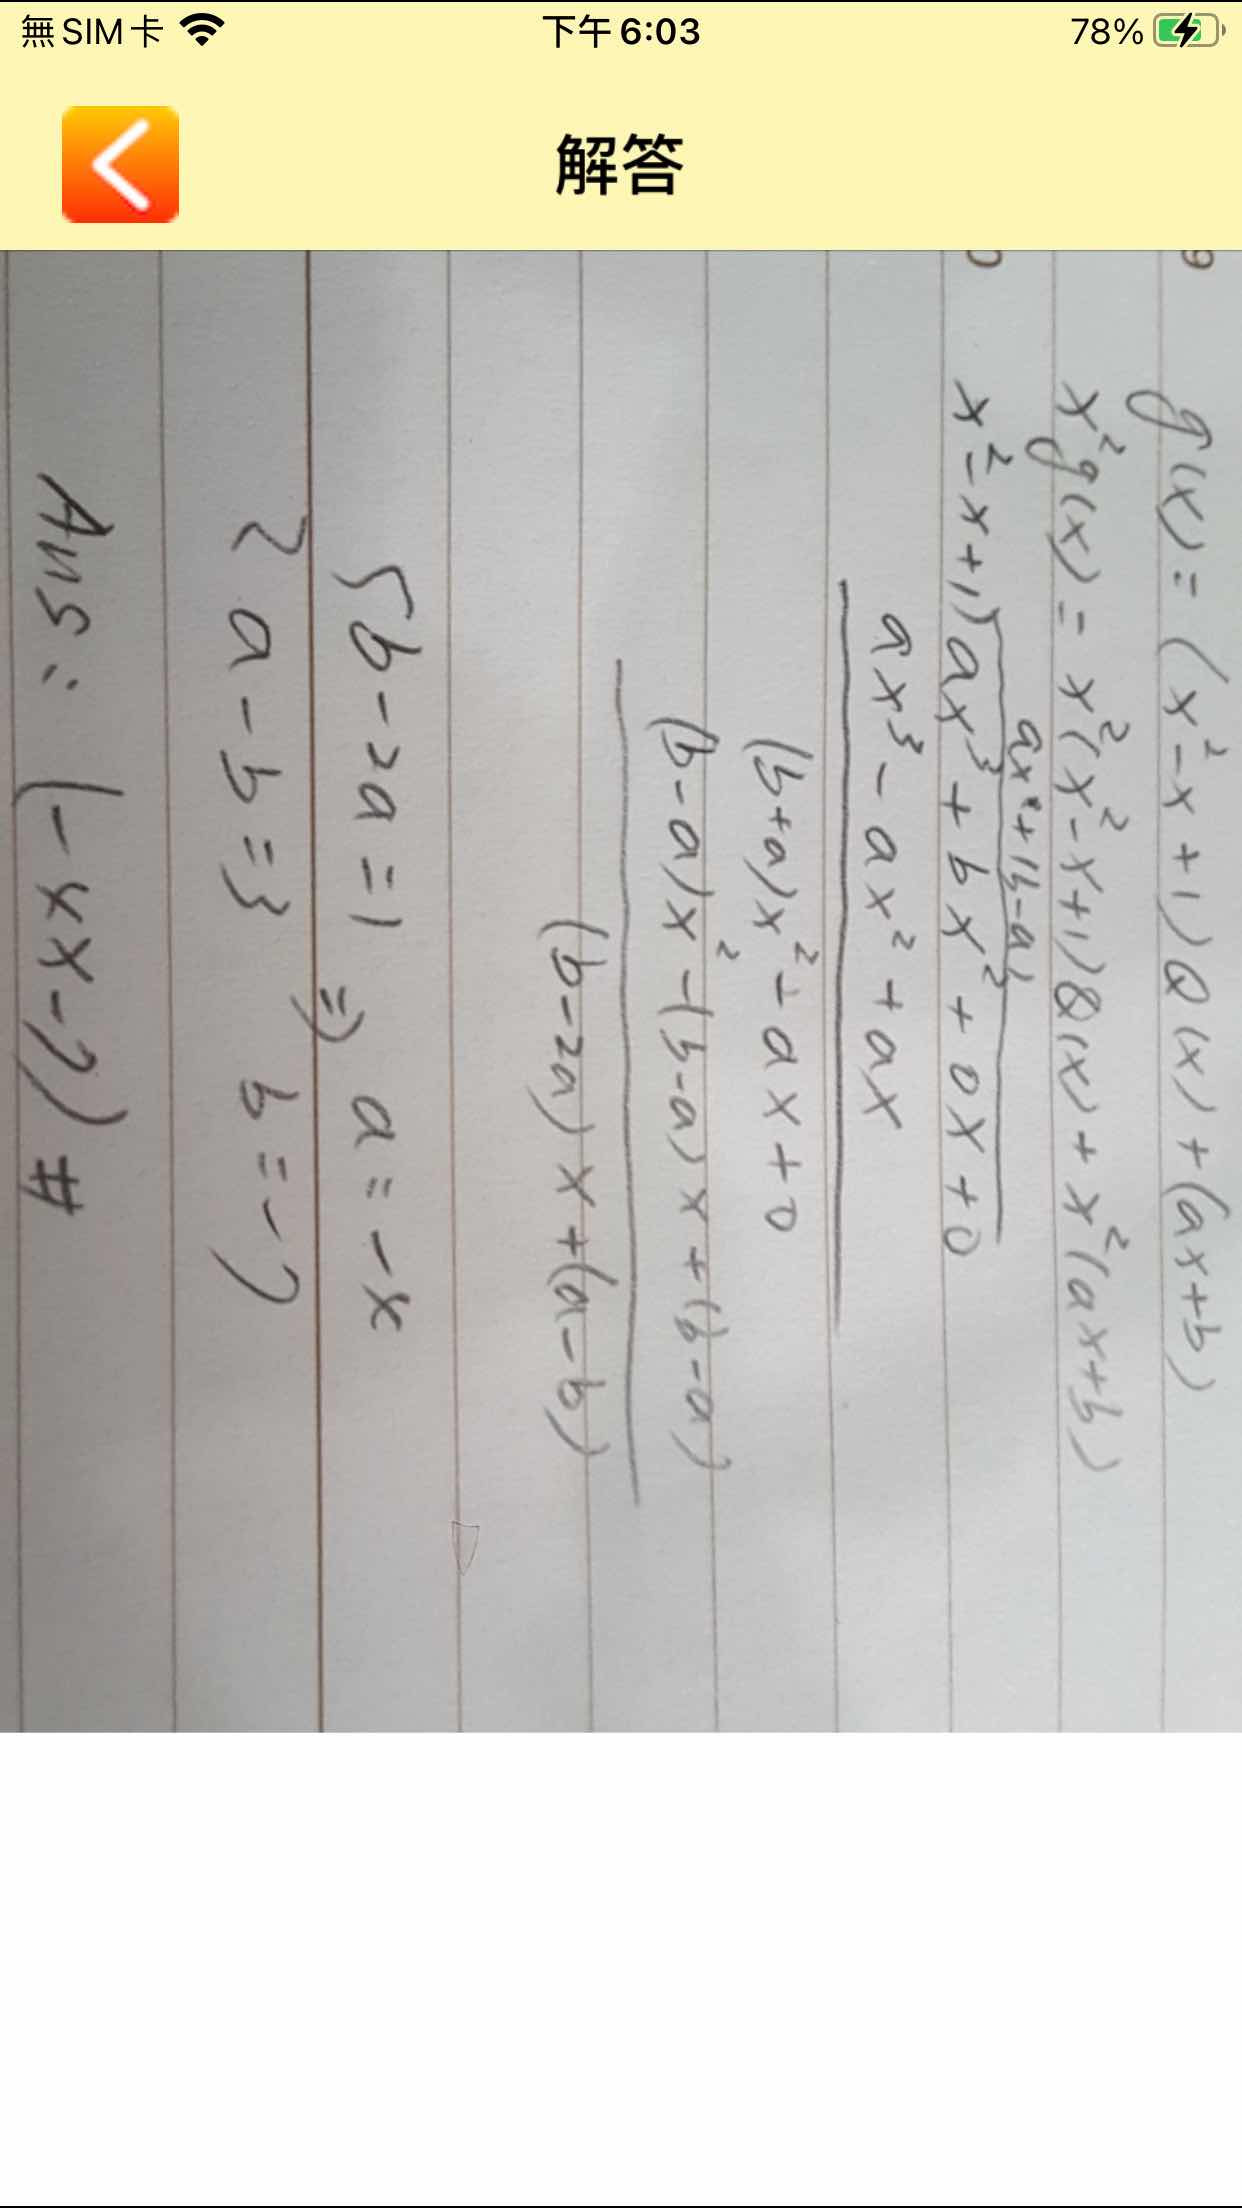 無SIM卡 下午6:03 78%
解答
g(x) = (x²-x+1)Q(x) + (ax+b)
x²g(x) = x²(x²-x+1)Q(x) + x²(ax+b)
ax + (b-a)
x²-x+1)ax³ + bx² + 0x + 0
ax³ - ax² + ax
(b+a)x² - ax + 0
(b-a)x² - (b-a)x + (b-a)
(b-2a)x + (a-b)
{b-2a=1 ⇒ a=-x
a-b=3 b=-7
Ans: (-xx-7) #